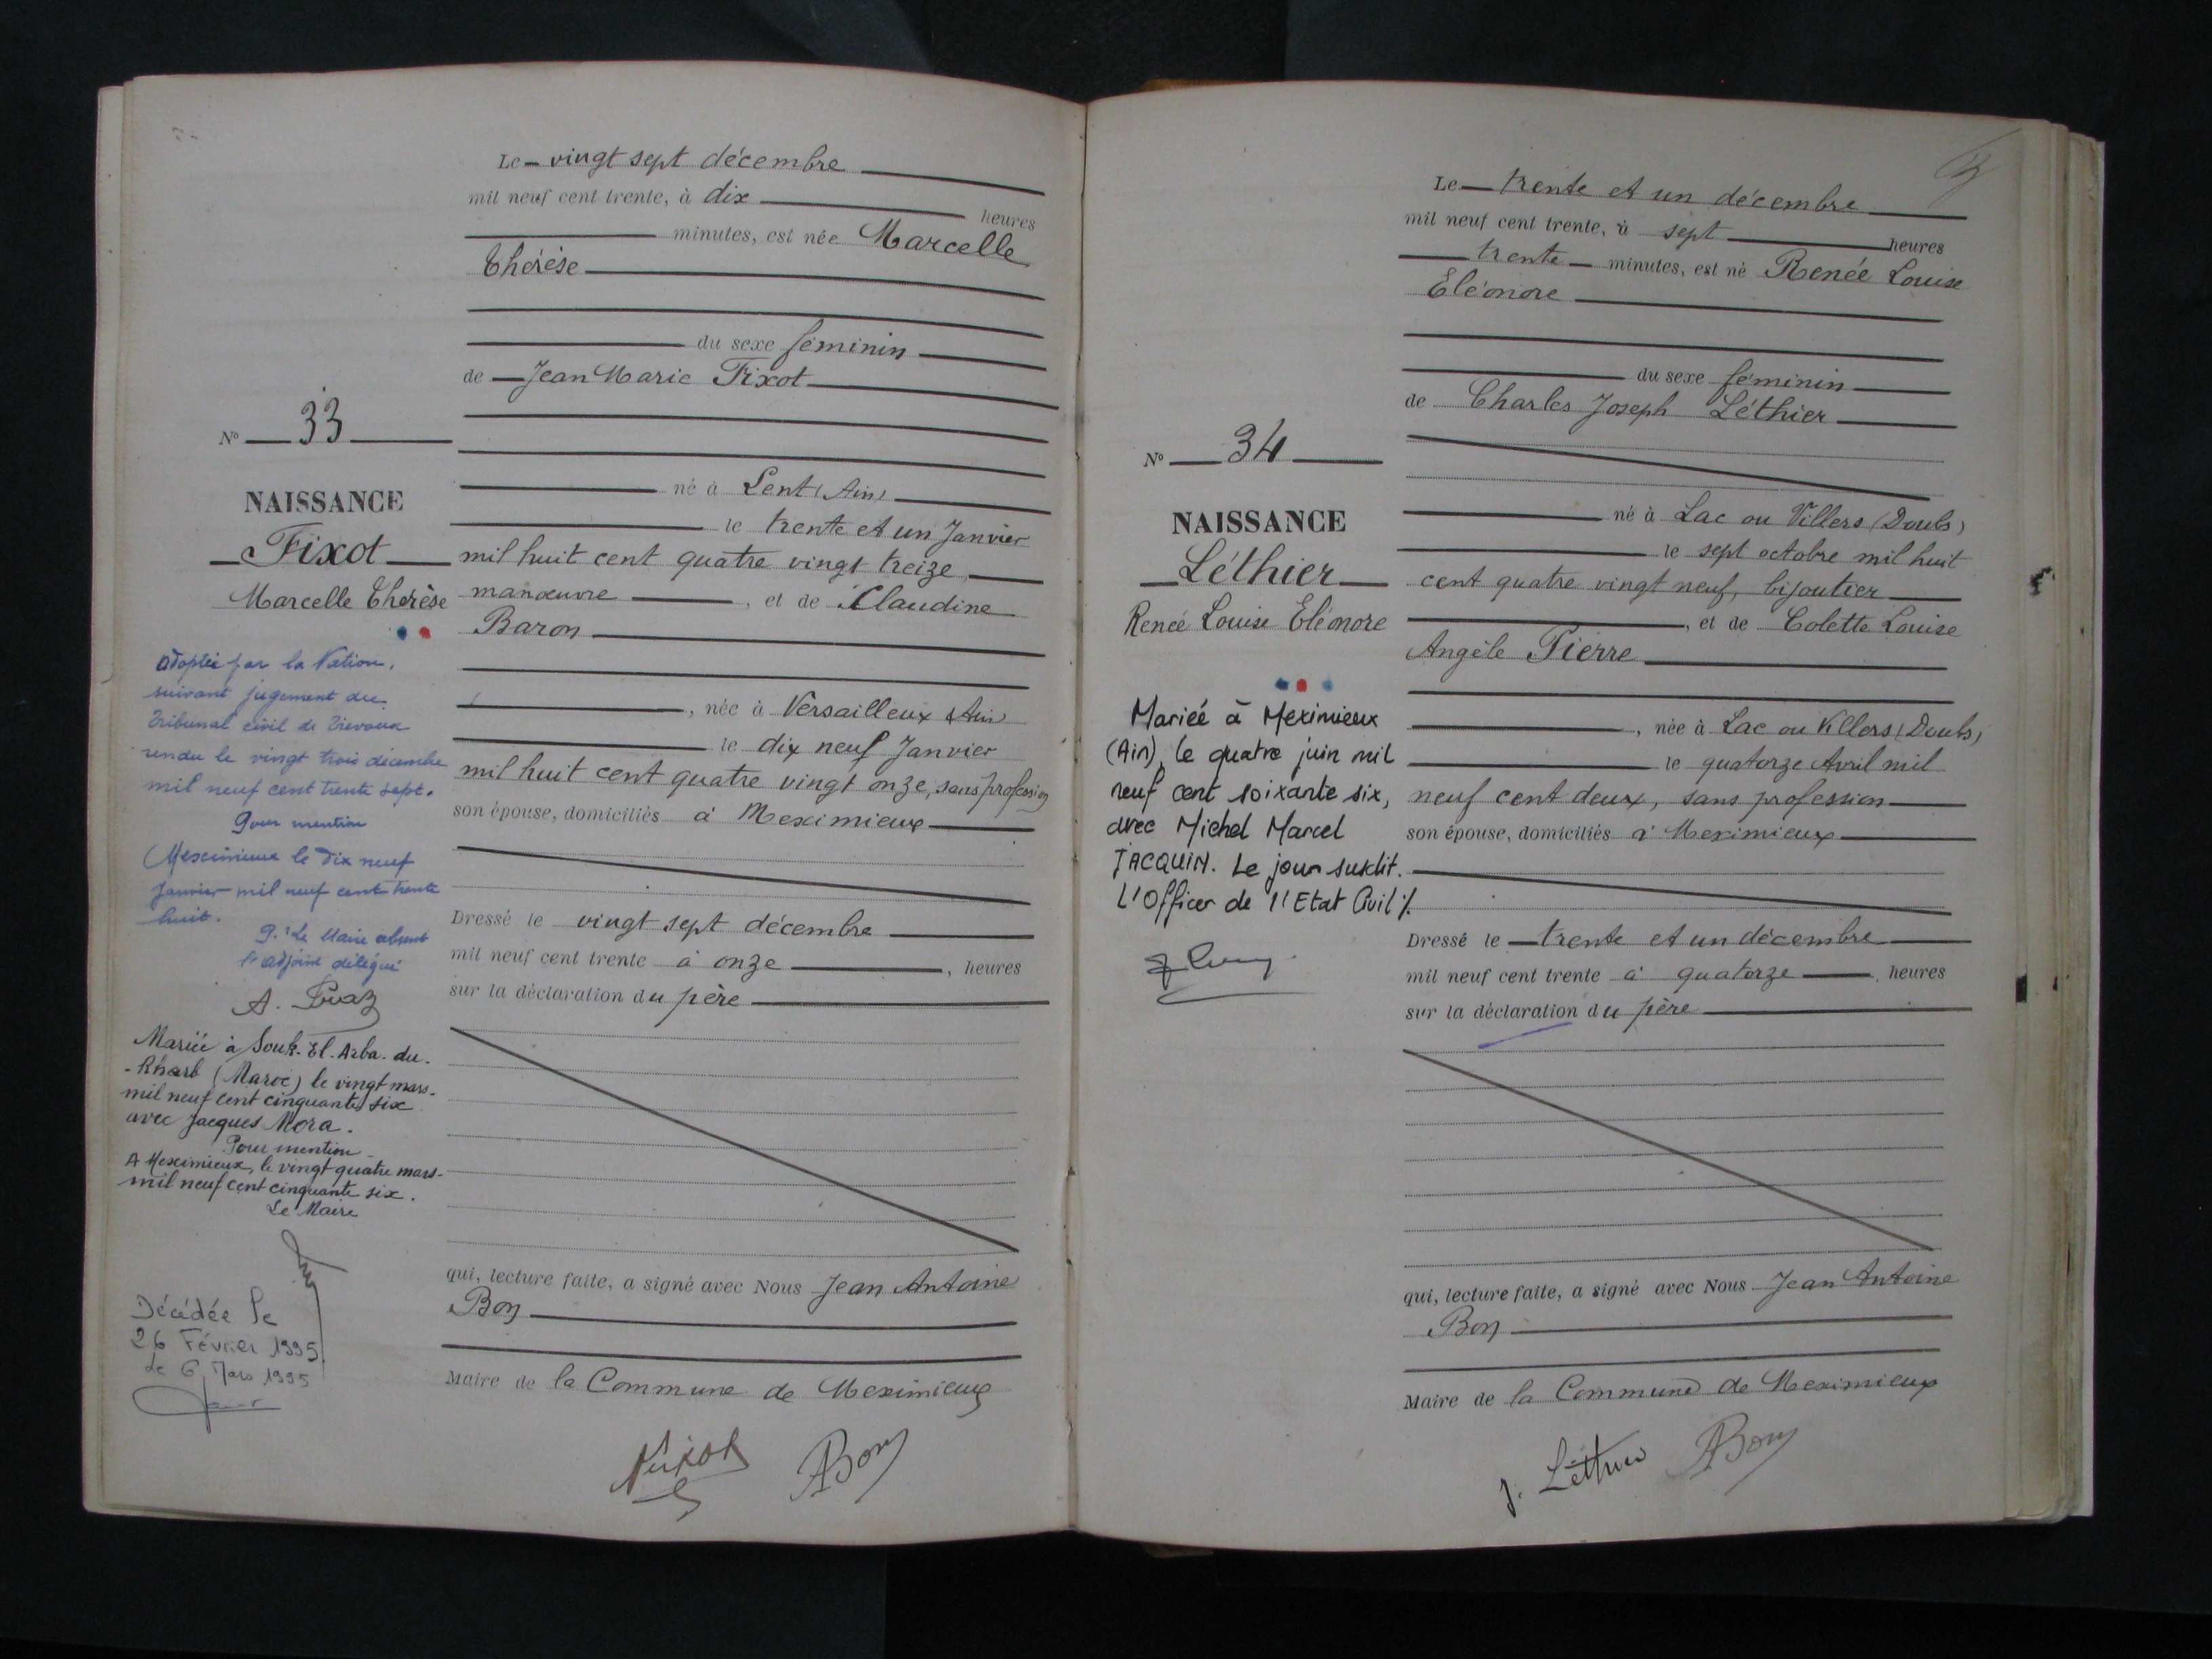 N° 33
NAISSANCE
Fixot
Marcelle Thérèse
adoptée par la Nation,
suivant jugement du
Tribunal civil de Trévoux
rendu le vingt trois décembre
mil neuf cent trente sept.
Pour mention
Meximieux le dix neuf
Janvier mil neuf cent trente
huit.
P. Le Maire absent
l'adjoint délégué
Mariée à Souk-El-Arba-du-
-Rharb (Maroc) le vingt mars-
mil neuf cent cinquante six
avec Jacques Mora.
Pour mention
A Meximieux, le vingt quatre mars-
mil neuf cent cinquante six.
Le Maire
Décédée le
26 Février 1995
le 6 Mars 1995
Le vingt sept décembre
mil neuf cent trente, à dix heures
minutes, est née Marcelle
Thérèse
du sexe féminin
de Jean Marie Fixot
né à Lent (Ain)
le trente et un Janvier
mil huit cent quatre vingt treize
manœuvre, et de Claudine
Baron
, née à Versailleux (Ain)
le dix neuf Janvier
mil huit cent quatre vingt onze, sans profession
son épouse, domiciliés à Meximieux
Dressé le vingt sept décembre
mil neuf cent trente à onze, heures
sur la déclaration du père
qui, lecture faite, a signé avec Nous Jean Antoine
Bon
Maire de la Commune de Meximieux
Fixot ABon
N° 34
NAISSANCE
Léthier
Renée Louise Eléonore
Mariée à Meximieux
(Ain), le quatre juin mil
neuf cent soixante six,
avec Michel Marcel
JACQUIN. Le jour susdit.
L'Officer de l'Etat Civil ./.
Le trente et un décembre
mil neuf cent trente, à sept heures
trente minutes, est né Renée Louise
Eléonore
du sexe féminin
de Charles Joseph Léthier
né à Lac ou Villers (Doubs)
le sept octobre mil huit
cent quatre vingt neuf, bijoutier
, et de Colette Louise
Angèle Pierre
, née à Lac ou Villers (Doubs)
le quatorze Avril mil
neuf cent deux, sans profession
son épouse, domiciliés à Meximieux
Dressé le trente et un décembre
mil neuf cent trente à quatorze heures
sur la déclaration du père
qui, lecture faite, a signé avec Nous Jean Antoine
Bon
Maire de la Commune de Meximieux
J. Léthier ABon